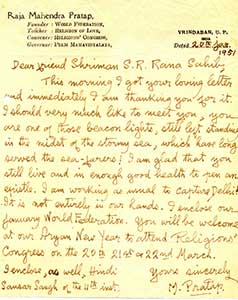 Raja Mahendra Pratap,
Founder : WORLD FEDERATION,
Teacher : RELIGION OF LOVE,
Convener: RELIGIONS' CONGRESS,
Governor: PREM MAHAVIDYALAYA,
VRINDABAN, U. P.
INDIA
Dated 20th Jan. 1951
Dear friend Shriman S. R. Rana Sahib,
This morning I got your loving letter
and immediately I am thanking you for it.
I should very much like to meet you, you
are one of those beacon lights, still left standing
in the midst of the stormy sea, which have long
served the sea-farers! I am glad that you
still live and in enough good health to pen an
epistle. I am working as usual to capture Delhi!
It is not entirely in our hands. I enclose our
January World Federation. You will be welcome
at our Aryan New Year to attend Religions'
Congress on the 20 21st or 22nd March.
I enclose, as well, Hindi
Yours sincerely
Sansar Sangh of the 4th inst.
M. Pratap.